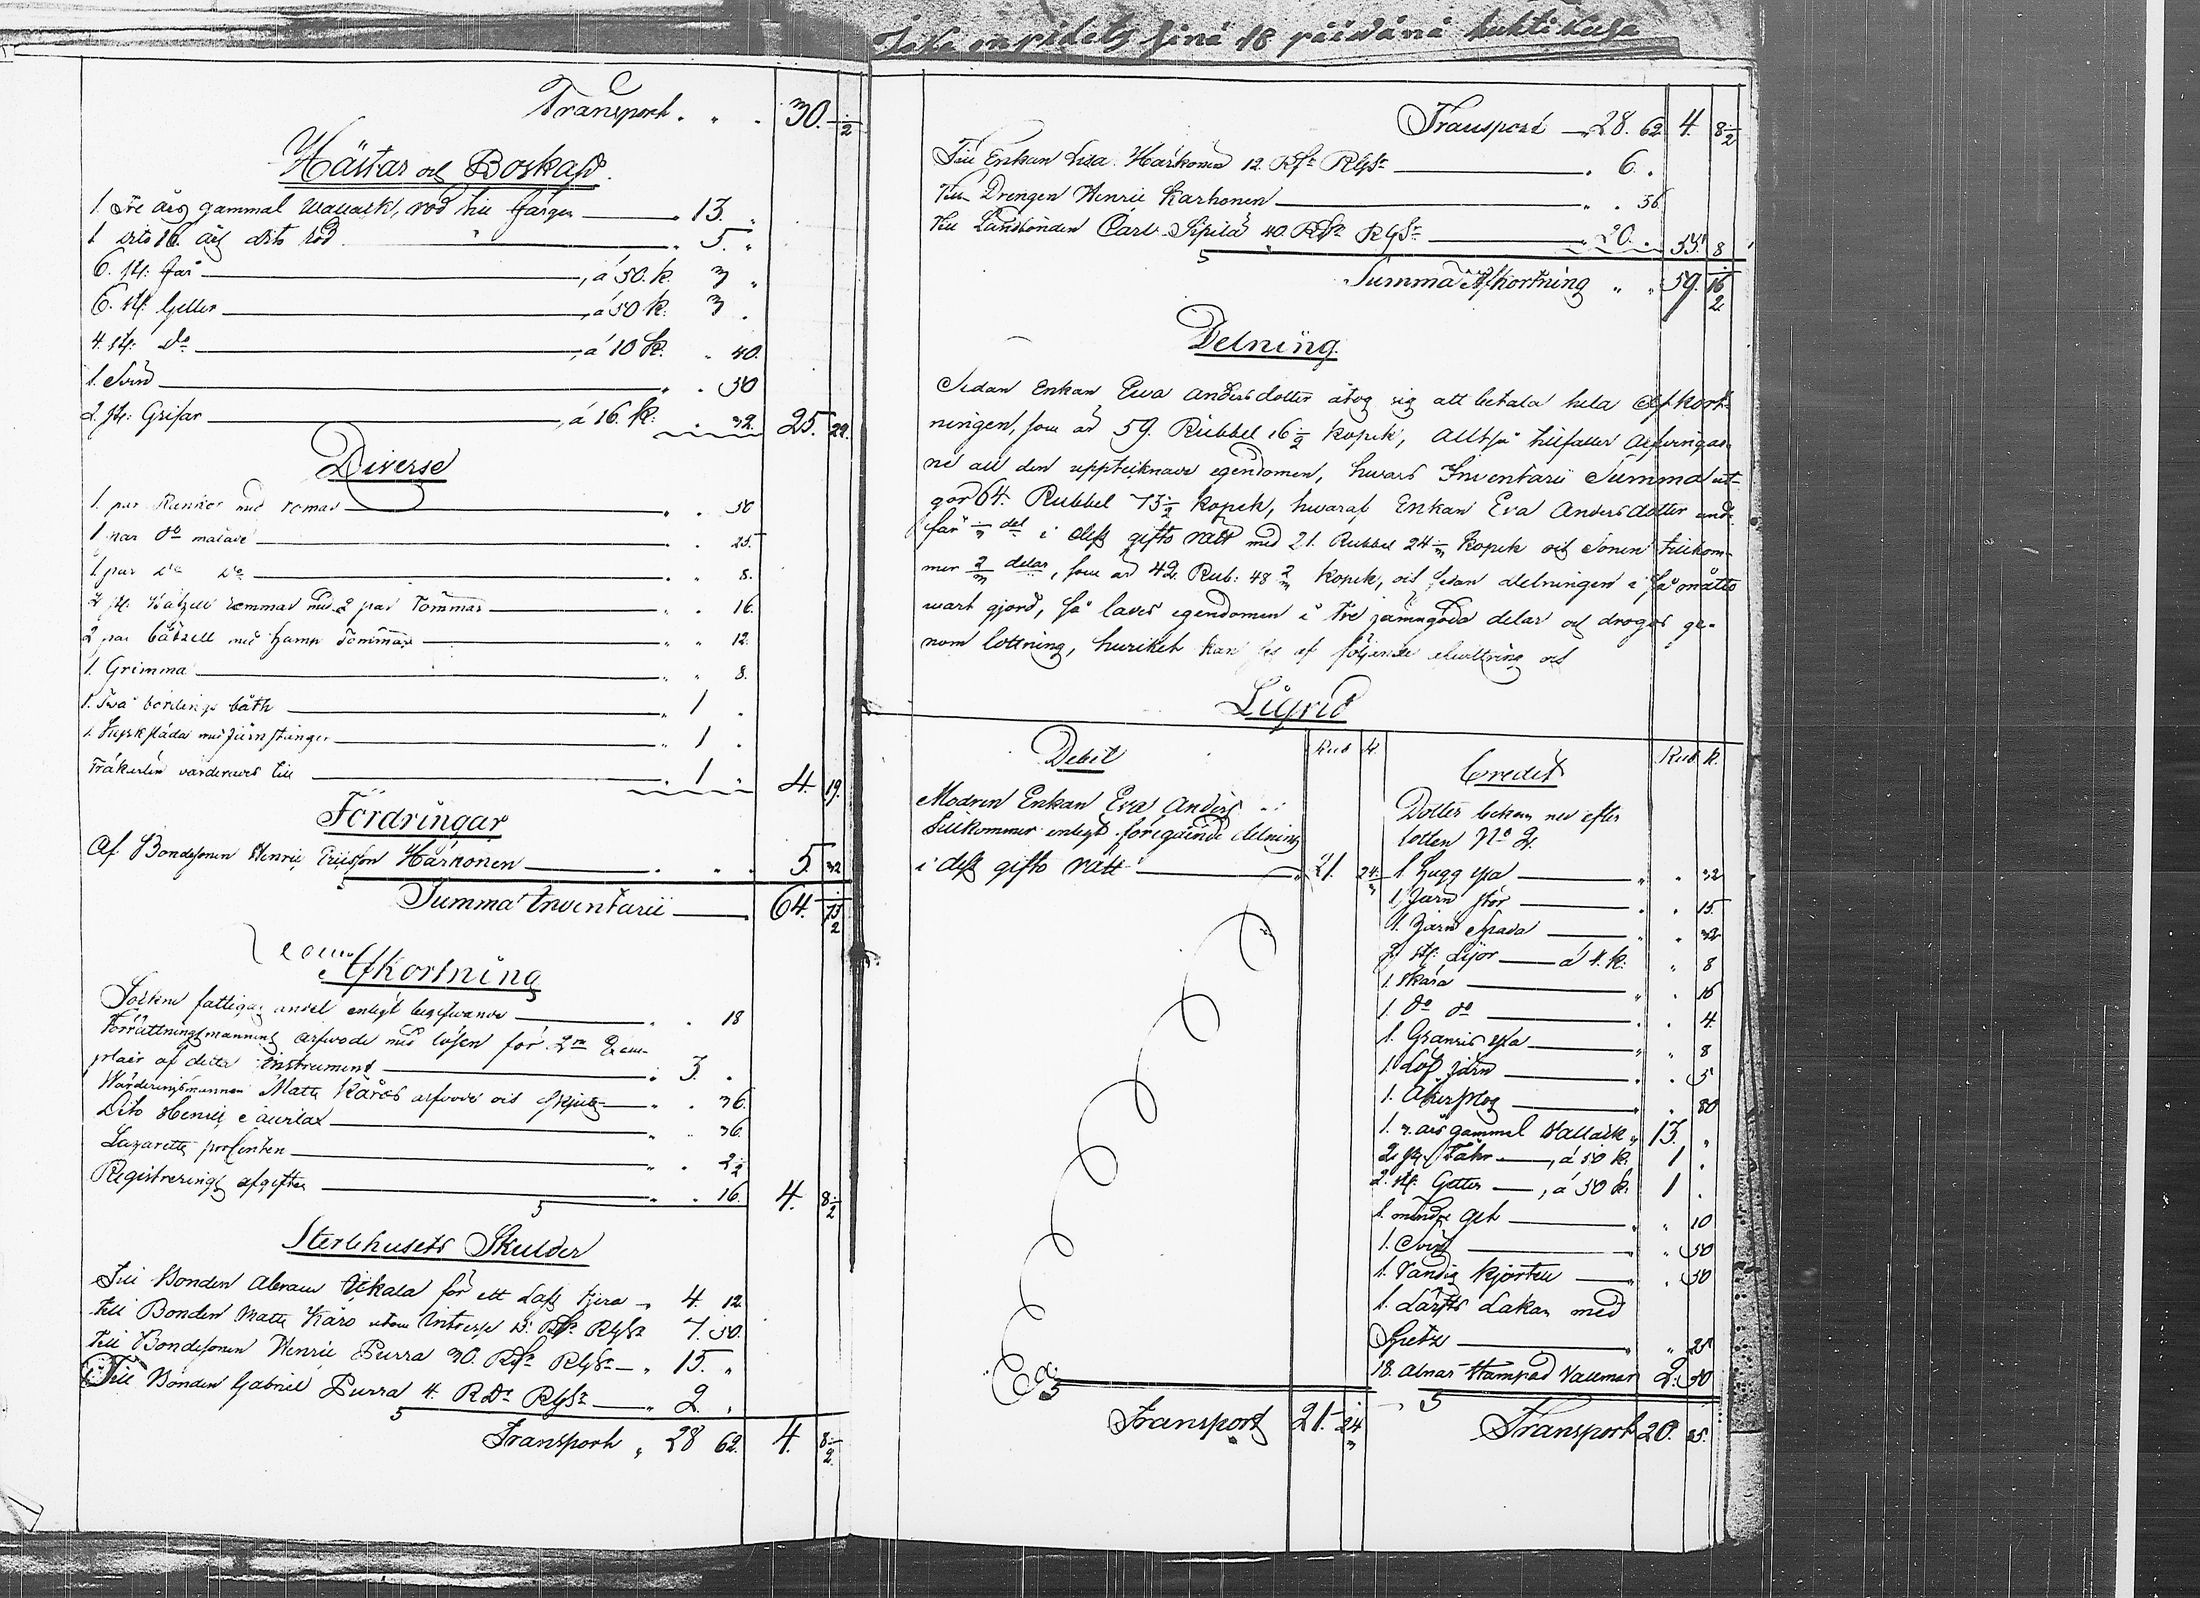 Transport . " . 30. 1/2
Hästar och Boskap.
1. Tre års gammal Wallack, röd till färgen " 13. "
1 dito 16. års dito röd " 5. "
6. st: får , á 50. k. 3 "
6. st: Getter , á 50 k. 3 .
4. st: do , á 10 k. " 40.
1. Svin " . 50
2. st: Grisar , á 16. k. . 32. 25. 22.
Diverse
1. par med . 50
1 par do målade . 25.
1. par dito do " 8.
2 par Tömmar . 16.
2 par med hamp Tömmar " " 12.
1. Grimma " " 8.
1. Två bördings båth " 1 .
1. med järnstänger " 1 .
Träkärlen värderades till . 1 " 4. 19.
Fordringar
Af Bondesonen Henric Ericsson Härkonen . " . 5. 32
Summa Inventarii 64. 73 1/2
Afkortning
Sockne fattigas andel enligt begifvande " . 18
Förrättningsmannens arfvode med lösen för 2ne Exem-
plair af detta instrument . 3. .
Värderingsmannen Matts Käros arfvode och skjuts " . 36.
Dito Henric . 36.
Lazaretts procenten " . 2 1/2
Registrerings afgiften " . 16. 4. 8 1/2
Sterbhusets Skulder
Till Bonden Abram för ett Lass tjera " 4. 12
till Bonden Matts Käro utom Intresse 15. Rdr Rgs 7. 50.
till Bondesonen Henric Purra 30. Rdr Rgs " 15. "
Till Bonden Gabriel Purra 4. Rdr Rgs " 2. "
Transport " 28 62. 4. 8 1/2
18 päivänä huhtikusa
Transport 28. 62. 4. 8 1/2
Till Enkan Lisa Härkonen 12. Rdr Rgs . 6. .
till Drengen Henric Karhonen " . 36
till Landbonden Carl 40. Rdr Rgs " 20. . 55. 8
Summa Afkortning " " 59. 16 1/2
Delning.
Sedan Enkan Eva Andersdotter åtog sig att betala hela Afkort-
ningen, som är 59. Rubbel 16 1/2 kopek, alltså tillfaller Arfvingar-
ne all den upptecknade egendomen, hvars Inventarii Summa ut-
gör 64. Rubbel 73 1/2 kopek, hvaraf Enkan Eva Andersdotter
får 1/3 del i dess gifto rätt med 21. Rubbel 24 1/3 kopek och Sonen tillkom-
mer 2/3 delar, som är 42. Rub: 48 2/3 kopek, och sedan delningen i så måtto
wart gjord, så lades egendomen i Tre jämngoda delar och drogos ge-
nom lottning, hvilket kan ses af följande och
Liqvid
Debit Rub k.
Modren Enkan Eva Anders
tillkommer enligt föregående delning
i dess gifto rätt " 21. 24 1/3
Transport 21. 24 1/3
Credit Rub k.
Dotter bekom ned efter
lotten No 2.
1. Hugg yxa " " 32
1. Järn stör . " 15.
1. Järn Spada " . 32
2 st: Lijor á 4. k: " 8
1. Skära " . 15
1. do do . . 4.
1. Granris yxa " " 8
1. Löf järn . . 5
1. Åkerplog " . 80
1. 3. års gammal Wallack " 13. "
2. st: Fåhr , á 50 k. 1 .
2. st: Getter , á 50 k. 1 .
1. mindre Get " " 10
1. Svin " " 50
1. Kjortell " . 50
1. Lärfts Lakan med
Spetz " " 25
18. Alnar Stampad Vallmar 2. 50
Transport 20. 85.